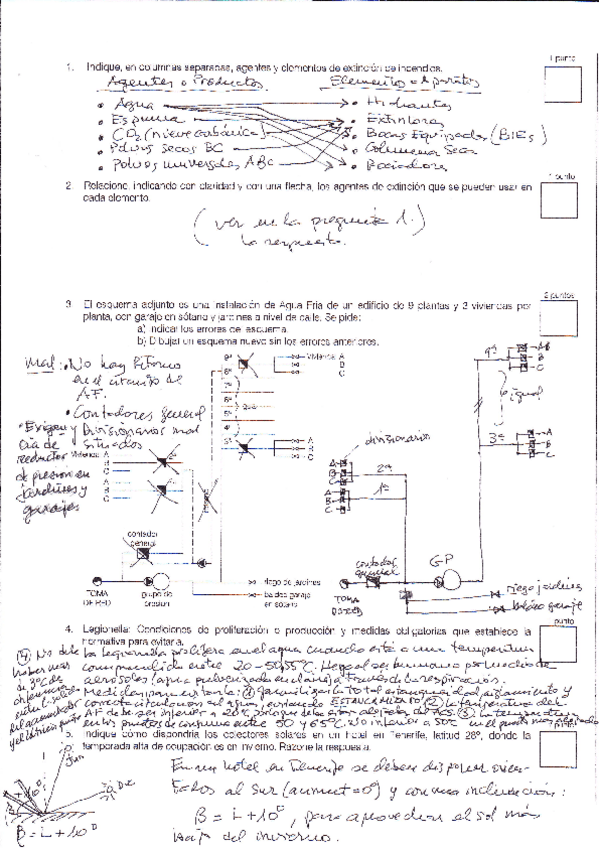 1 punto
1. Indique, en columnas separadas, agentes y elementos de extinción de incendios.
Agentes o Productos Elementos o Aparatos
• Agua • Hidrantes
• Espuma • Extintores
• CO2 (nieve carbónica) • Bocas Equipadas (BIEs)
• Polvos secos BC • Columna Seca
• Polvos universales ABC • Rociadores
1 punto
2. Relacione, indicando con claridad y con una flecha, los agentes de extinción que se pueden usar en
cada elemento.
(ver en la pregunta 1.)
la respuesta.
2 puntos
3. El esquema adjunto es una instalación de Agua Fría de un edificio de 9 plantas y 3 viviendas por
planta, con garaje en sótano y jardines a nivel de calle. Se pide:
a) Indicar los errores de esquema.
b) Dibujar un esquema nuevo sin los errores anteriores.
Mal: • No hay Retorno
en el circuito de
AF.
• Contadores general
y Divisionarios mal
situados
• Exigen
reductor
de presión en
jardines y
garajes
9ª
8ª
7ª
6ª
5ª
4ª
3ª
Vivienda A
B
C
A
B
C
Vivienda A
B
C
A
B
C
contador
general
TOMA
DE RED
grupo de
presión
riego de jardines
baldeo garaje
en sótano
9ª
A
B
C
igual
3ª
A
B
C
divisionarios
A
B
C
2ª
A
B
C
1ª
contador
general
GP
TOMA
riego jardines
baldeo garaje
punto
4. Legionella: Condiciones de proliferación o producción y medidas obligatorias que establece la
normativa para evitarla.
La legionella prolifera en el agua cuando está a una temperatura
comprendida entre 20-50/55ºC. Llega al ser humano por medio de
aerosoles (agua pulverizada en el aire) a través de la respiración.
Medidas para evitarla: (1) garantizar la total estanqueidad, aislamiento y
correcta circulación del agua, evitando ESTANCAMIENTO (2) la temperatura del
AF debe ser inferior a 20ºC (3) la temperatura
en los puntos de consumo entre 50 y 65ºC. No inferior a 50ºC en el punto más alejado
(4) No debe
haber más
de 3ºC de
diferencia
punto
5. Indique cómo dispondría los colectores solares en un hotel en Tenerife, latitud 28º, donde la
temporada alta de ocupación es en invierno. Razone la respuesta.
En un hotel en Tenerife se deben disponer orien-
tados al Sur (acimut=0º) y con una inclinación:
B = L+10º, para aprovechar el sol más
bajo del invierno.
Jun
Dic
B = L+10º